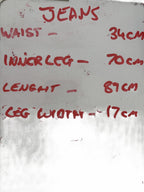 JEANS
WAIST - 34CM
INNERLEG - 70CM
LENGHT - 89CM
LEG WIDTH - 17CM